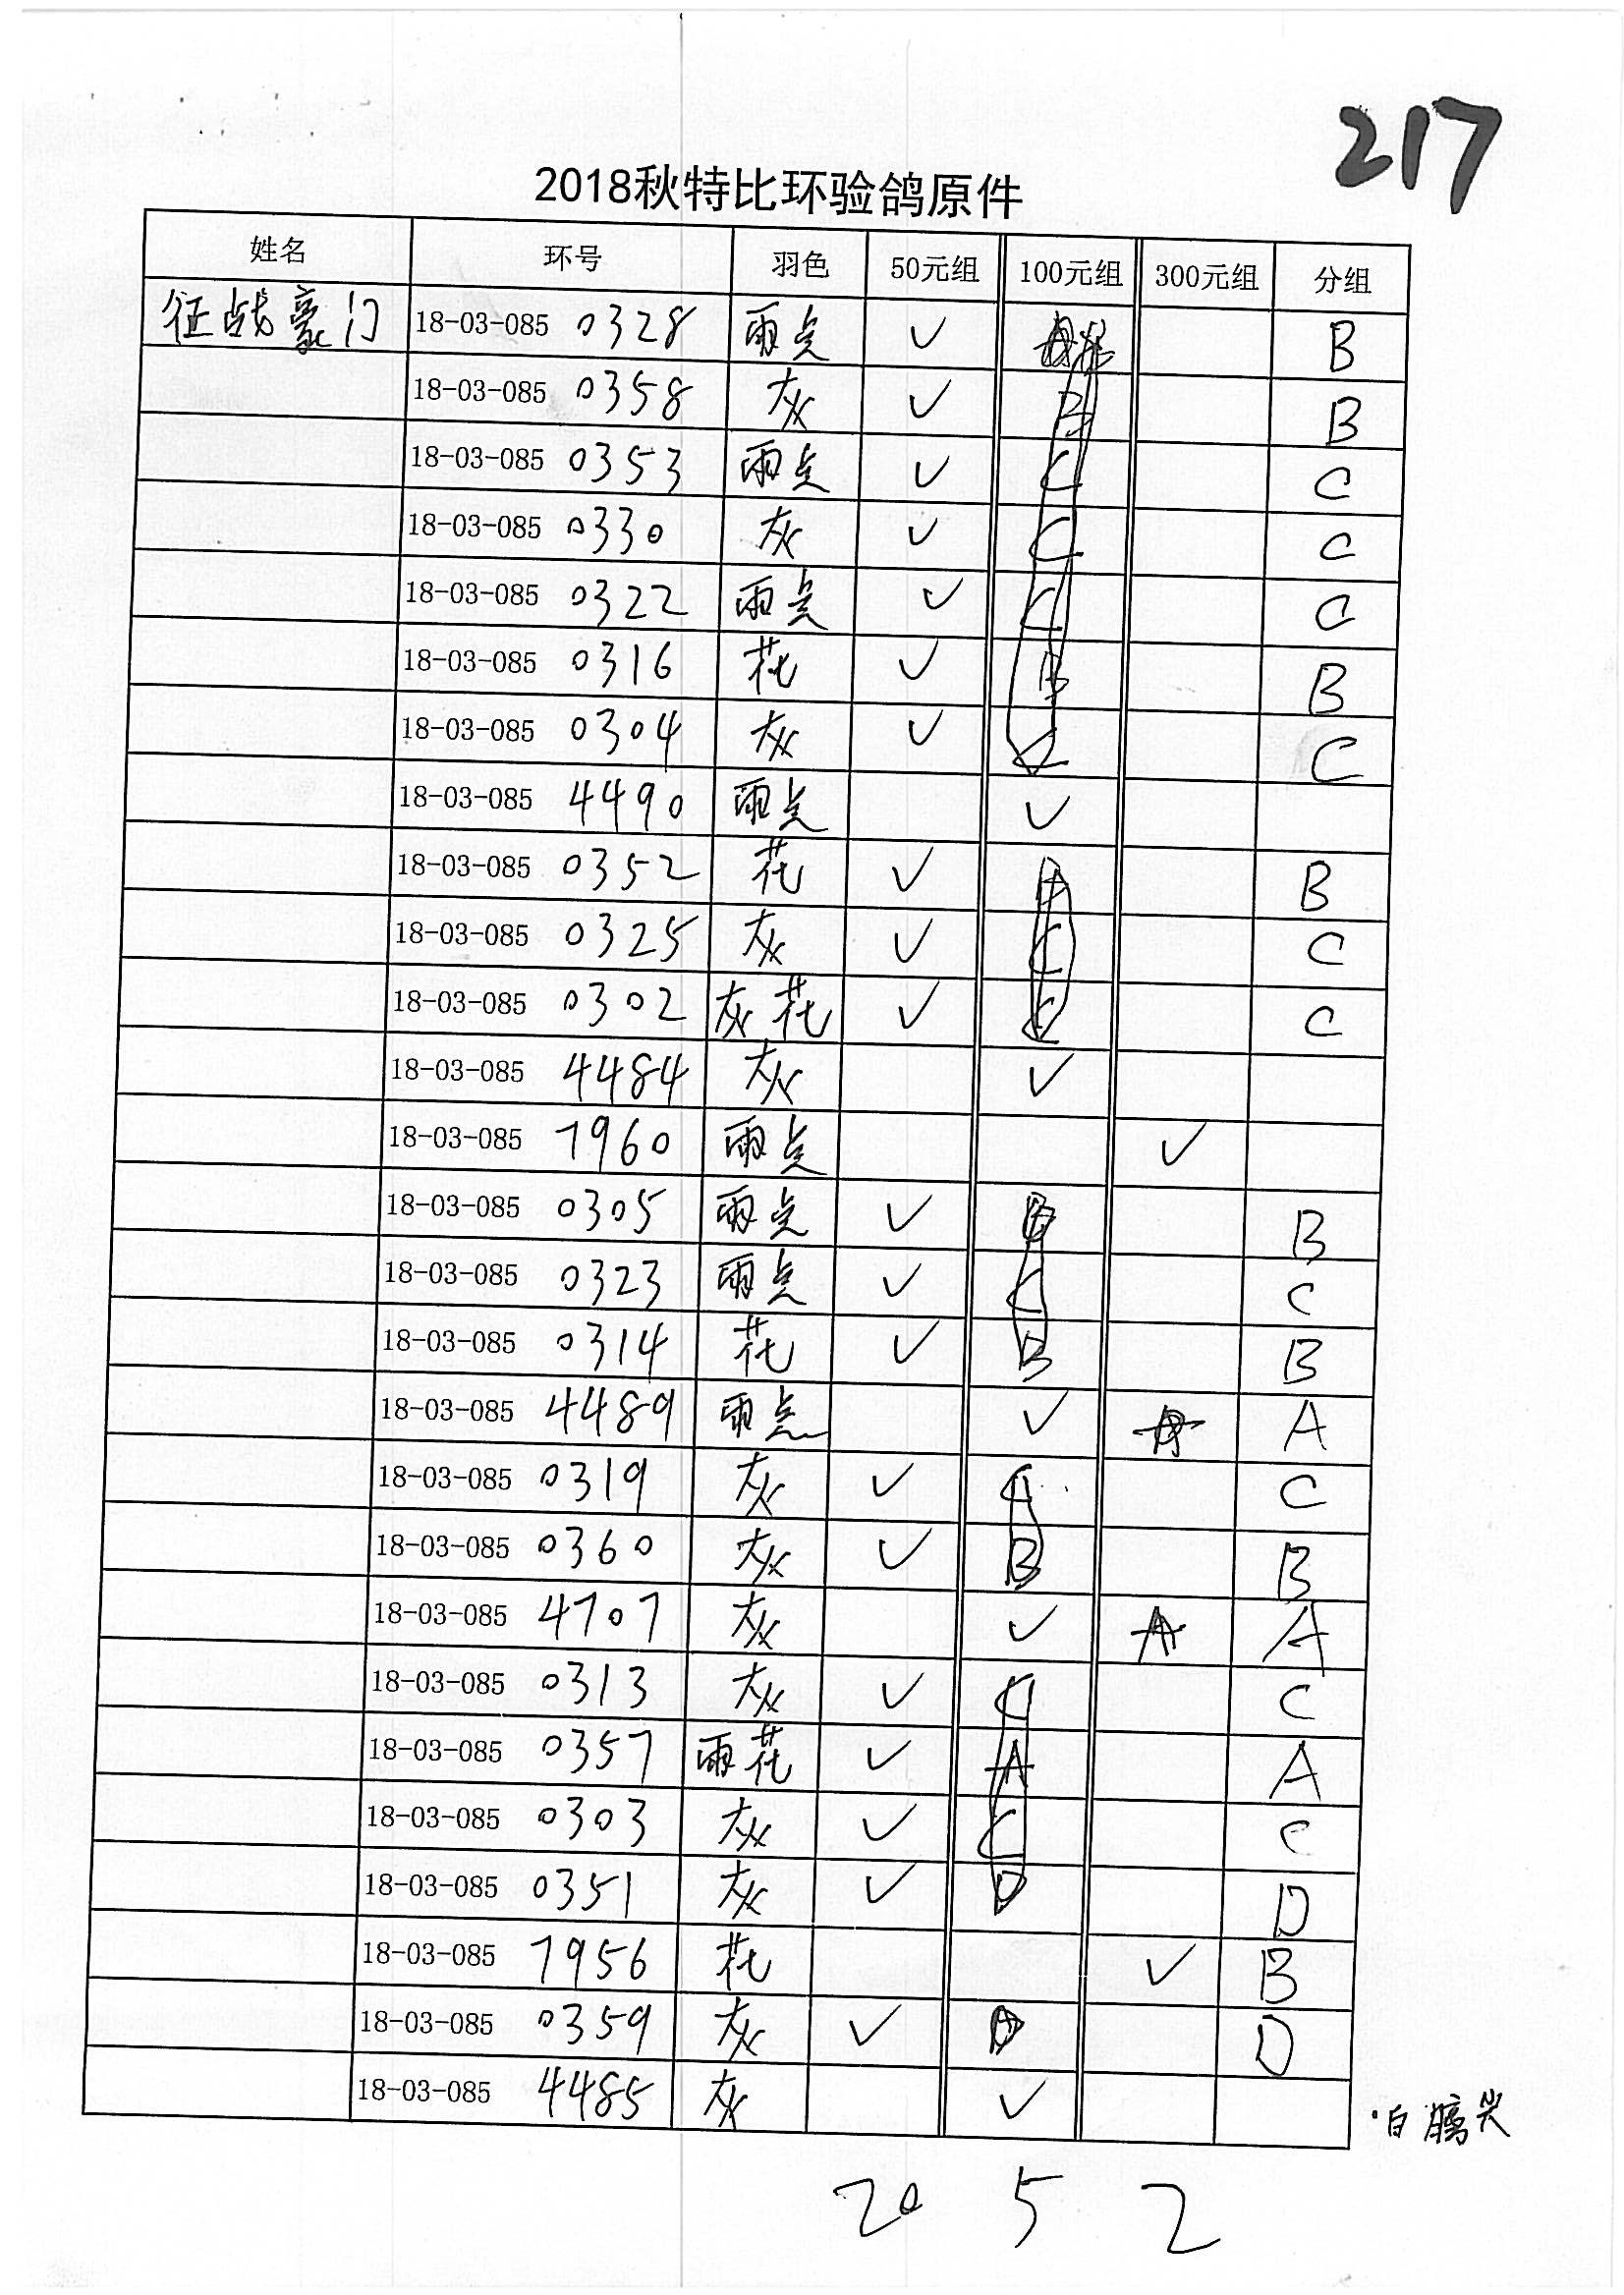 217
2018秋特比环验鸽原件
姓名 环号 羽色 50元组 100元组 300元组 分组
征战豪门 18-03-085 0328 雨点 ✓ B
18-03-085 0358 灰 ✓ B B
18-03-085 0353 雨点 ✓ C C
18-03-085 0330 灰 ✓ C C
18-03-085 0322 雨点 ✓ C C
18-03-085 0316 花 ✓ B B
18-03-085 0304 灰 ✓ C C
18-03-085 4490 雨点 ✓
18-03-085 0352 花 ✓ B
18-03-085 0325 灰 ✓ C C
18-03-085 0302 灰花 ✓ C C
18-03-085 4484 灰 ✓
18-03-085 7960 雨点 ✓
18-03-085 0305 雨点 ✓ B B
18-03-085 0323 雨点 ✓ C C
18-03-085 0314 花 ✓ B B
18-03-085 4489 雨点 ✓ A
18-03-085 0319 灰 ✓ C C
18-03-085 0360 灰 ✓ B B
18-03-085 4707 灰 ✓ A A
18-03-085 0313 灰 ✓ C C
18-03-085 0357 雨花 ✓ A A
18-03-085 0303 灰 ✓ C C
18-03-085 0351 灰 ✓ D D
18-03-085 7956 花 ✓ B
18-03-085 0359 灰 ✓ D
18-03-085 4485 灰 ✓
20 5 2